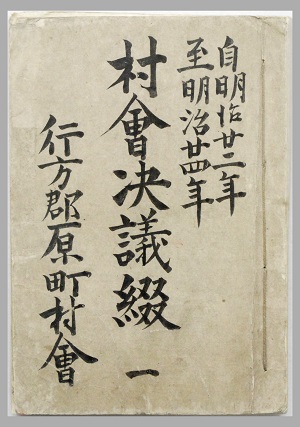 自明治廿二年
至明治廿四年
村會决議綴 一
行方郡原町村會